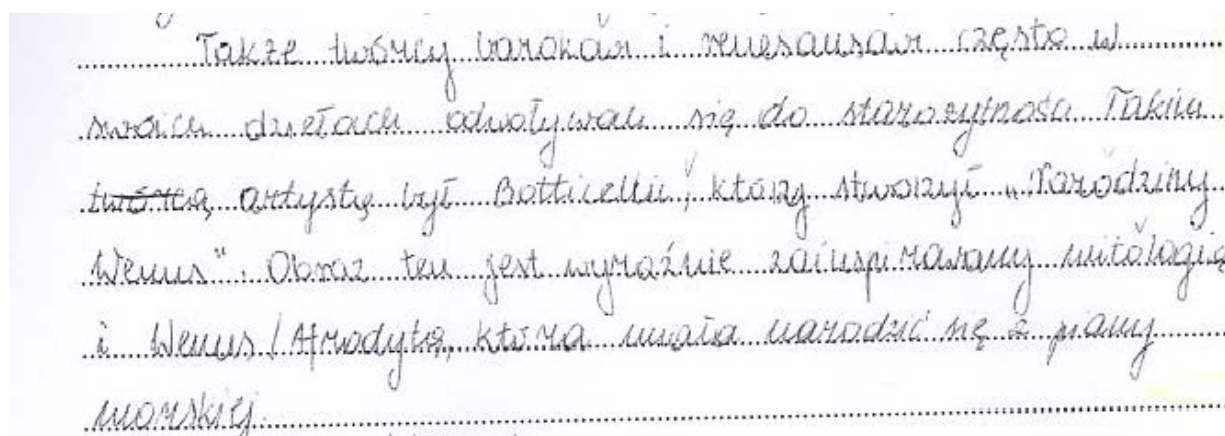 Także twórcy baroków i renesansów często w
swoich dziełach odwoływali się do starożytności Takim
twórcą artystę był Botticellii, który stworzył „Narodziny
Wenus". Obraz ten jest wyraźnie zainspirowany mitologią
i Wenus / Afrodytą, która miała narodzić się z piany
morskiej.